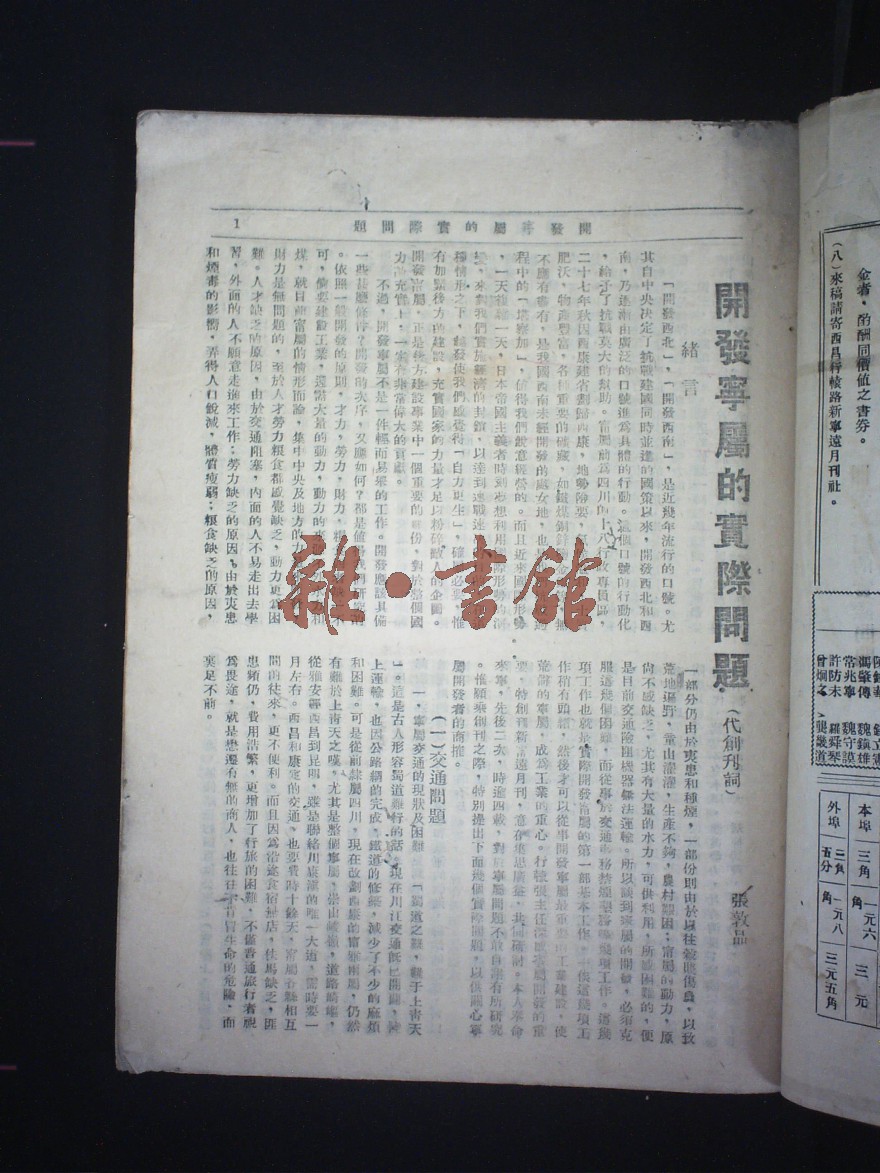 開發寧屬的實際問題
1
開發寧屬的實際問題
（代創刊詞）
張敦品
緒言
「開發西北」，「開發西南」，是近幾年流行的口號。尤
其自中央決定了抗戰建國同時並進的國策以來，開發西北和西
南，乃逐漸由廣泛的口號進爲具體的行動。這個口號的行動化
，給予了抗戰莫大的幫助。寧屬前爲四川的十八行政專員區，
二十七年秋因西康建省劃歸西康，地勢險要，
肥沃，物產豐富，各種重要的礦藏，如鐵煤銅鋅
不應有盡有，是我國西南未經開發的處女地，也
程中的「堪察加」，值得我們銳意經營的。而且近來國際形勢
，一天複雜一天，日本帝國主義者時刻妄想利用
來對我們實施經濟的封鎖，以達到速戰速
種情形之下，越發使我們感覺得「自力更生」，確
必要，惟
有加緊後方的建設，充實國家的力量才足以粉碎敵人的企圖。
開發寧屬，正是後方建設事業中一個重要的部份，對於整個國
力的充實上，一定有非常偉大的貢獻。
不過，開發寧屬不是一件輕而易舉的工作。開發應該具備
一些甚麼條件？開發的次序，又應如何？都是值得我們研究的
。依照一般開發的原則，才力，勞力，財力，
可，倘要建設工業，還需大量的動力，動力的
煤，就目前寧屬的情形而論，集中中央及地方的力
財力是無問題的，至於人才勞力粮食都感覺缺乏，動力更爲困
難。人才缺乏的原因，由於交通阻塞，內面的人不易走出去學
習，外面的人不願意走進來工作；勞力缺乏的原因，由於夷患
和煙毒的影響，弄得人口銳減，體質瘦弱；粮食缺乏的原因，
一部分仍由於夷患和種煙，一部份則由於以往濫墾傷農，以致
荒地遍野，童山濯濯，生產不夠，農村艱困；寧屬的動力，原
尙不感缺乏，尤其有大量的水力，可供利用，所感困難的，便
是目前交通險阻機器無法運輸。所以談到寧屬的開發，必須克
服這幾個困難，而從事於交通
項工作也就是實際開發寧屬的第一部基本工作
作稍有頭緒，然後才可以從事開發寧屬最重要的工業建設，使
荒僻的寧屬，成爲工業的重心。行轅張主任深感寧屬開發的重
要，特創刊新寧遠月刊，意在集思廣益，共同研討。本人奉命
來寧，先後二次，時逾四載，對於寧屬問題不敢自謂有所研究
。惟願乘創刊之際，特別提出下面幾個實際問題，以供關心寧
屬開發者的商搉。
（一）交通問題
一，寧屬交通的現狀及困難
「蜀道之難，難于上靑天
」。這是古人形容蜀道難行的話。現在川江交通旣已開闢，陸
上運輸，也因公路網的完成，鐵道的修築，減少了不少的麻煩
和困難。可是從前隸屬四川，現在改劃西康的寧雅兩屬，仍然
有難於上靑天之嘆。尤其是整個寧屬，崇山峻嶺，道路崎嶇，
從雅安經西昌到昆明，雖是聯絡川康滇的唯一大道，需時要一
月左右。西昌和康定的交通，也要費時十餘天，寧屬各縣相互
間的往來，更不便利。而且因爲沿途食宿無店，伕馬缺乏，匪
患頻仍，費用浩繁，更增加了行旅的困難，不僅普通旅行者視
爲畏途，就是懋遷有無的商人，也往往不肯冒生命的危險，而
裹足不前。
金者，酌酬同價值之書券。
（八）來稿請寄西昌行轅路新寧遠月刊社。
馮肇傅 魏鎭雄
常兆寧 魏守謨
許防未 羅舜琴
曾烱之 龔畿道
本埠 三角 一元六角 三元
外埠 三角五分 一元八角 三元五角
雜·書館